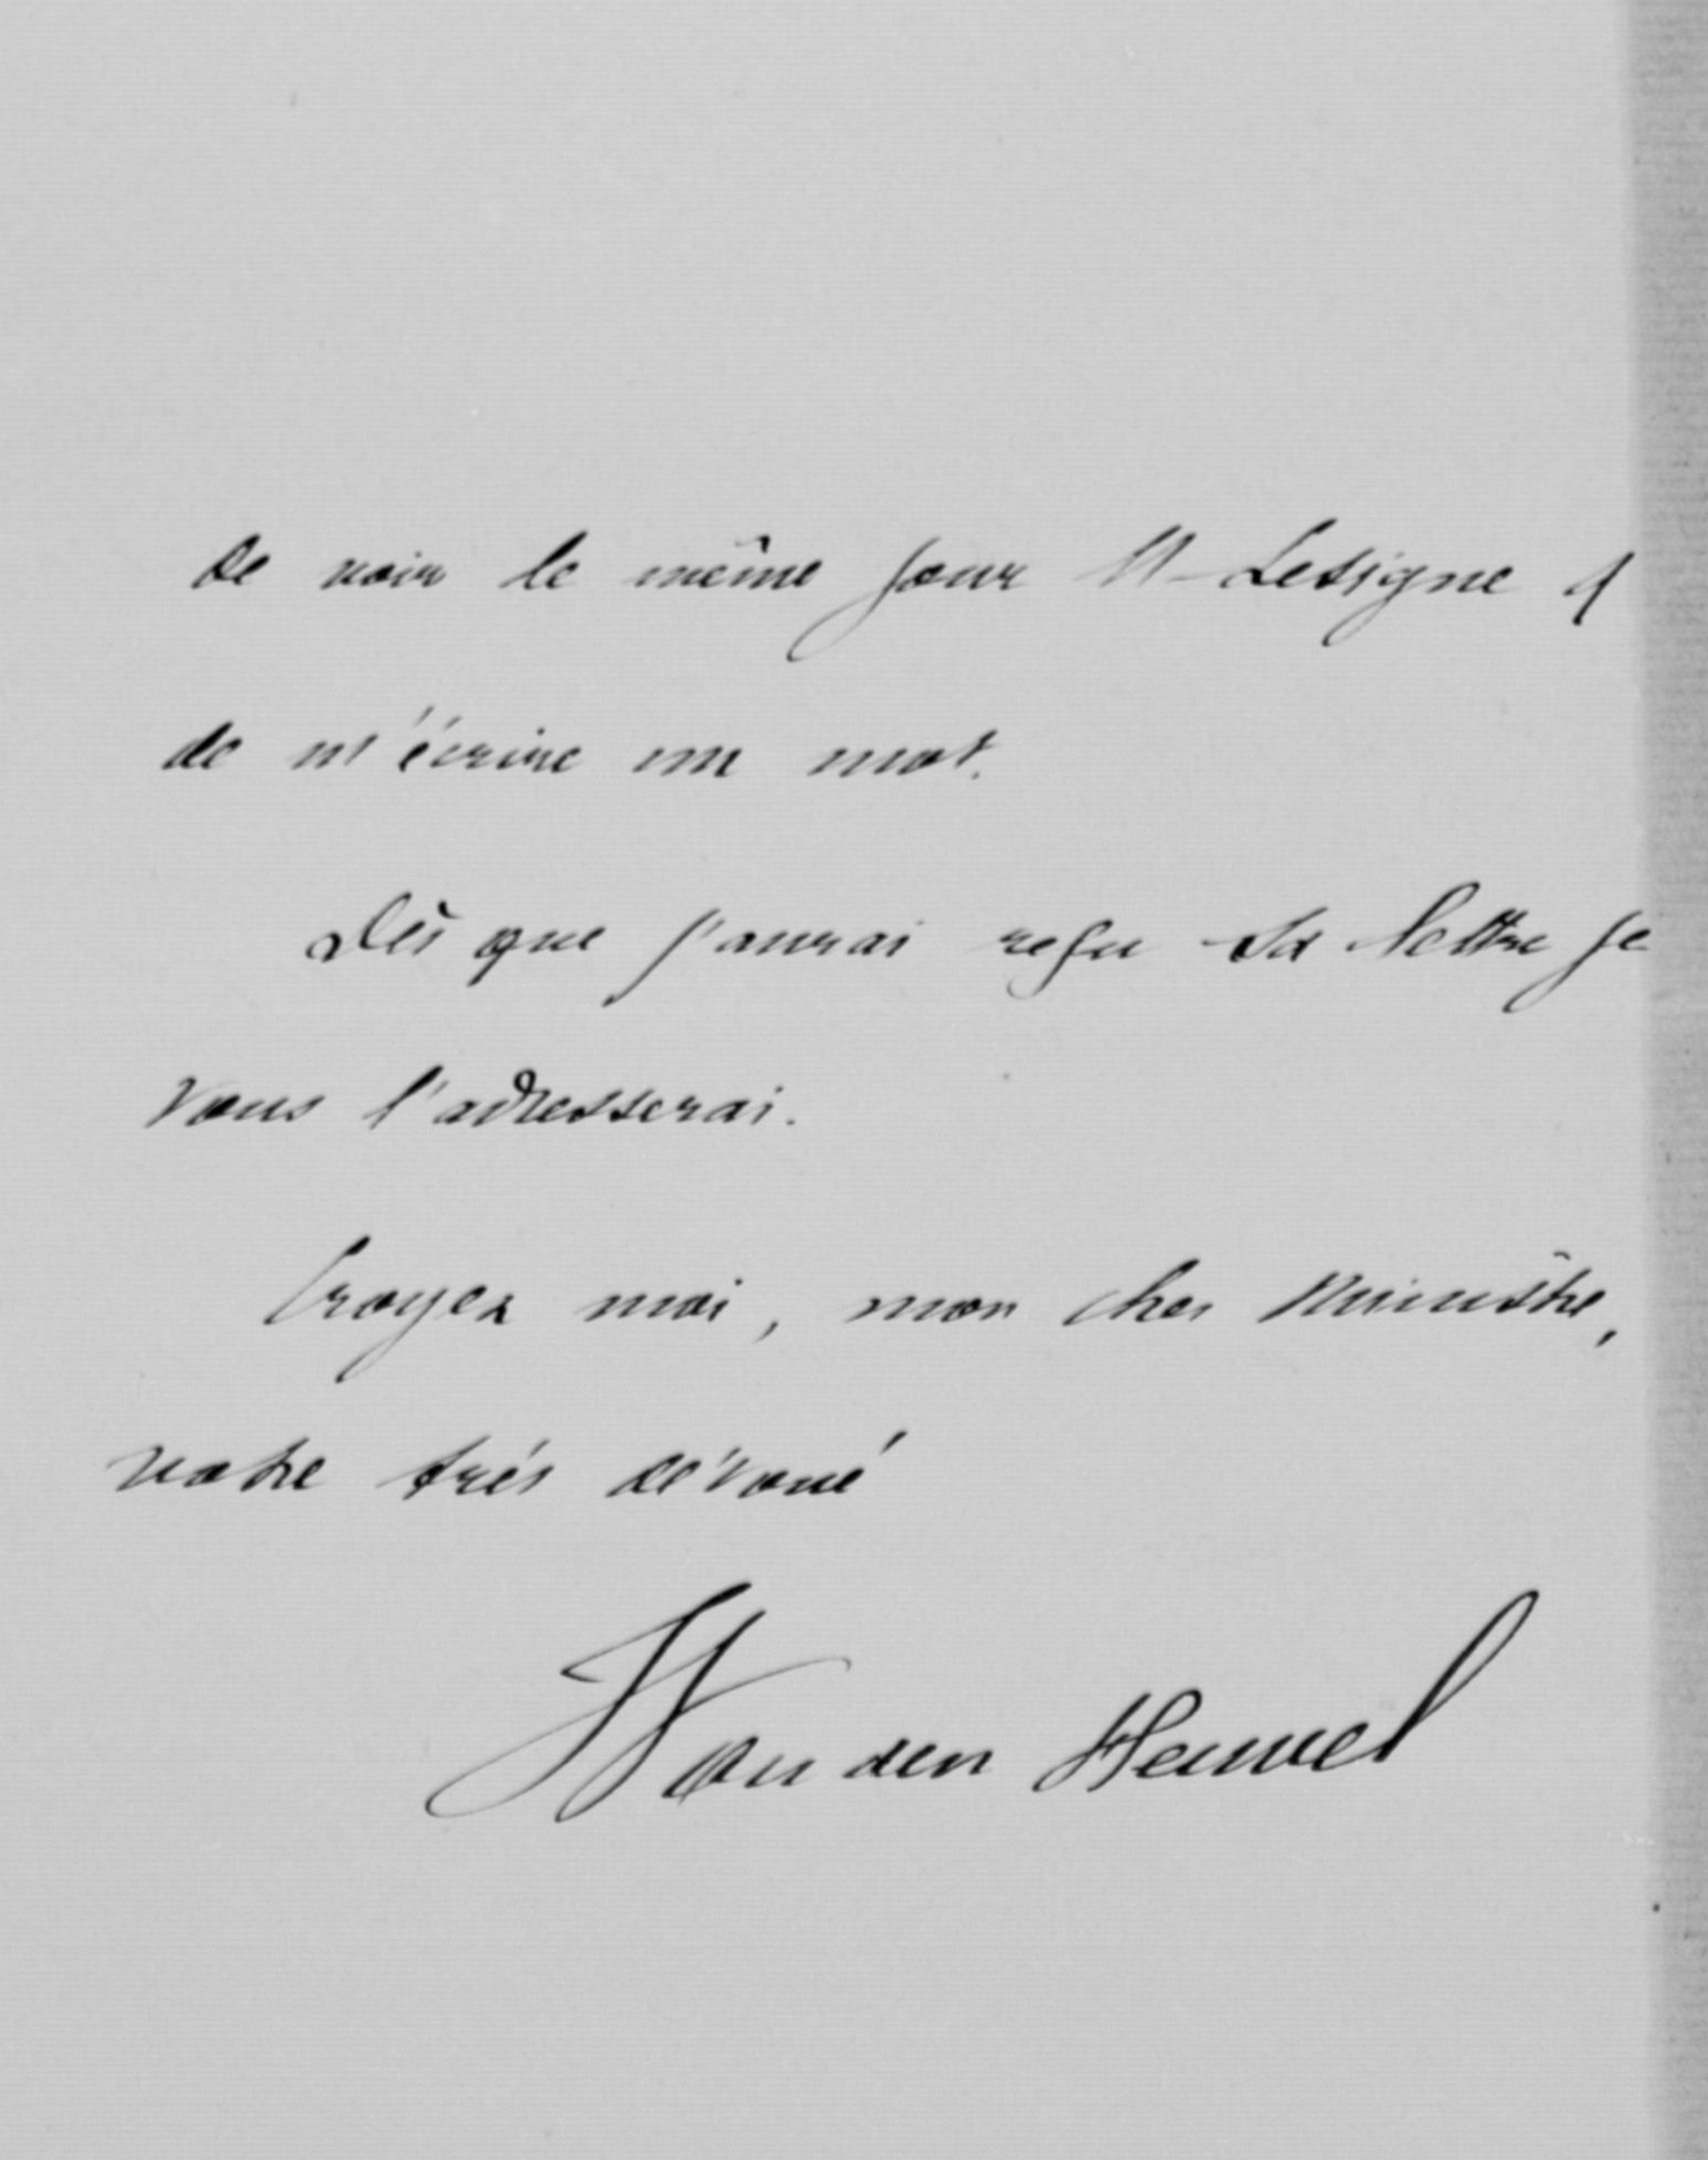 de voir le même jour M. Lesigne &
de m'écrire un mot.
Dès que j'aurai reçu sa lettre je
vous l'adresserai.
Croyez moi, mon cher Ministre,
votre très dévoué
J Van den Heuvel